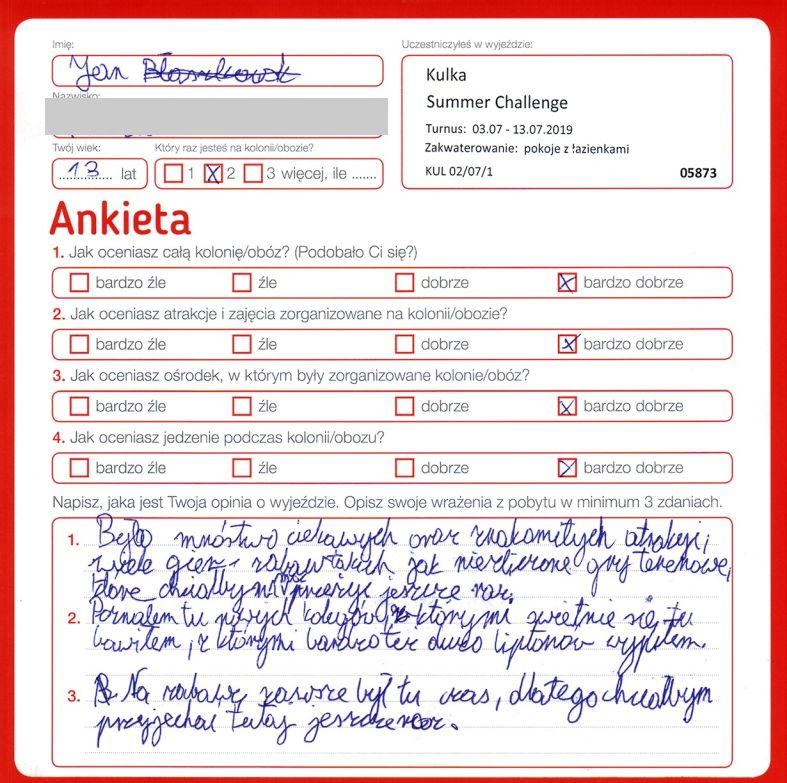 Imię:
Jan
Uczestniczyłeś w wyjeździe:
Kulka
Summer Challenge
Turnus: 03.07 - 13.07.2019
Zakwaterowanie: pokoje z łazienkami
KUL 02/07/1 05873
Nazwisko:
Twój wiek: Który raz jesteś na kolonii/obozie?
13 lat 1 X 2 3 więcej, ile .......
Ankieta
1. Jak oceniasz całą kolonię/obóz? (Podobało Ci się?)
bardzo źle źle dobrze X bardzo dobrze
2. Jak oceniasz atrakcje i zajęcia zorganizowane na kolonii/obozie?
bardzo źle źle dobrze X bardzo dobrze
3. Jak oceniasz ośrodek, w którym były zorganizowane kolonie/obóz?
bardzo źle źle dobrze X bardzo dobrze
4. Jak oceniasz jedzenie podczas kolonii/obozu?
bardzo źle źle dobrze X bardzo dobrze
Napisz, jaka jest Twoja opinia o wyjeździe. Opisz swoje wrażenia z pobytu w minimum 3 zdaniach.
1. Było mnóstwo ciekawych oraz znakomitych atrakcji,
wiele gier jak niezliczone gry terenowe,
które chciałbym móc przeżyć jeszcze raz.
2. Poznałem tu nowych kolegów, z którymi świetnie się tu
bawiłem, z którymi bardzo też dużo liptonów wypiłem.
3. Na zabawę zawsze był tu czas, dlatego chciałbym
przyjechać tutaj jeszcze raz.